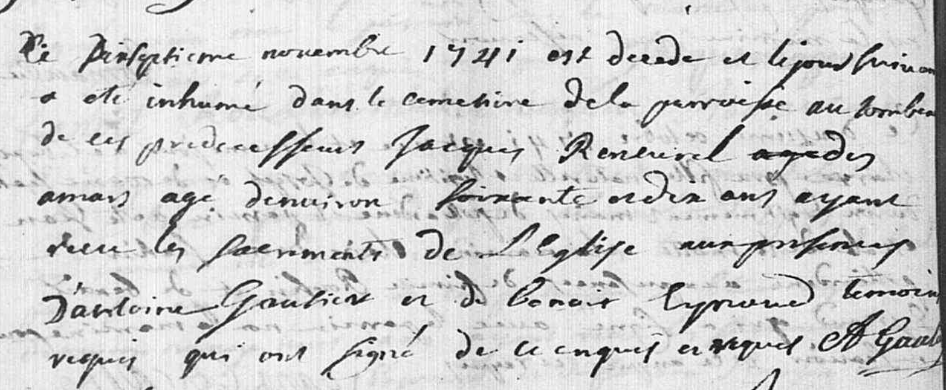 Le Disseptieme novembre 1741 est decede et le jour suivan
a eté inhumé dans le cemetiere de la parroisse au tombeau
de ces predecesseurs Jacques Rencurel agé des
amars agé denviron soixante et dix ans ayant
receu les sacrements de L'Eglise aux presences
D'antoine Gautier et de benoit Eyraud temoins
requis qui ont signé de ce enquis et requis A Gaut